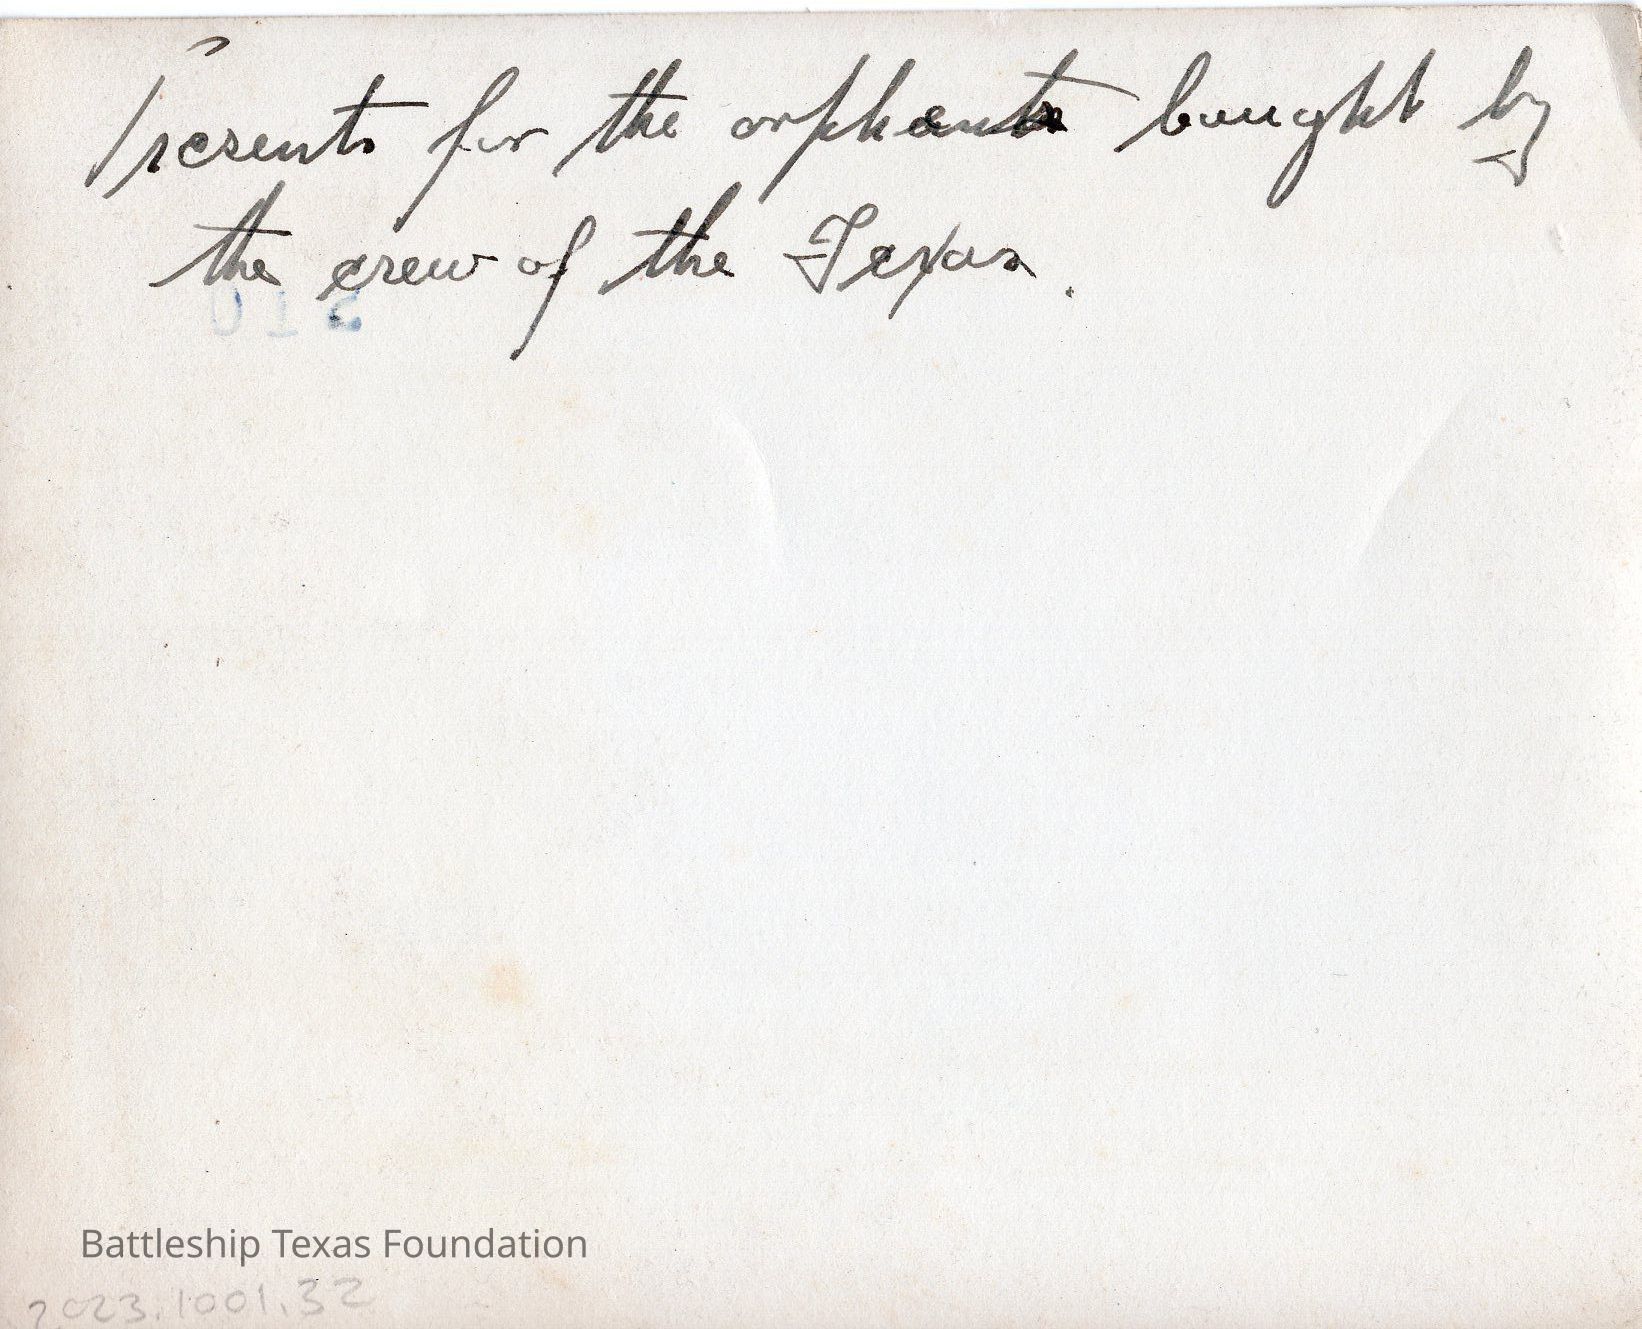 Presents for the orphants bought by
the crew of the Texas.
Battleship Texas Foundation
2023.1001.32